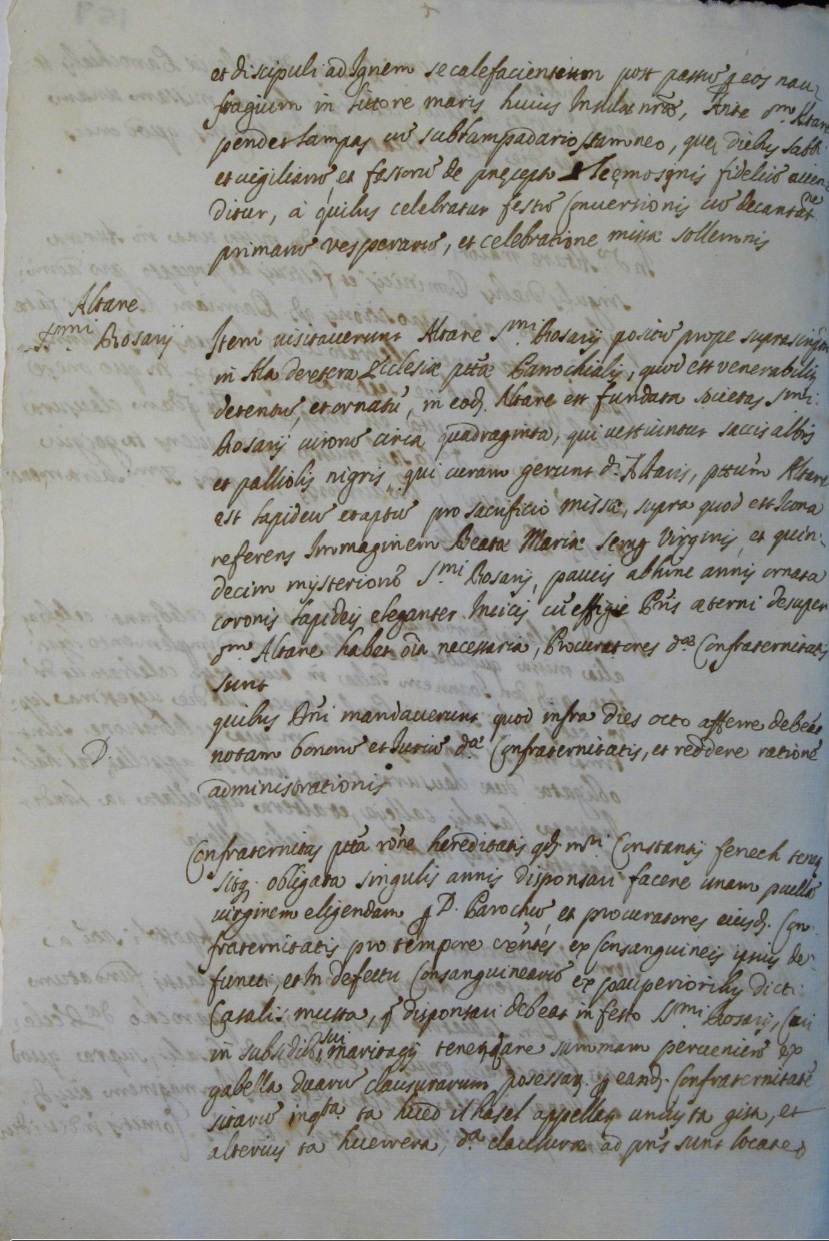 et discipuli ad Ignem se calefacientem post passū p eos nau
fragium in littore maris huius Insulae nrae, Ante dm Altare
pendet lampas cū sublampadario stamneo, quę diebus sabbi
et uigiliarū et festorū de pręcepto elęmosynis fideliū accen
ditur, a quibus celebratur festū Conuersionis cū decantatne
primarū vesperarū, et celebratione missae sollemnis
Altare
SSmi Rosarij
Item uisitauerunt Altare Smi Rosarij positū prope suprascriptum
in Ala dextera Ecclesiae pttae Parochialis, quod est venerabilis
detentū, et ornatū, in eod. Altare est fundata societas Smi:
Rosarij uirorū circa quadraginta, qui uestiuntur saccis albis
et palliolis nigris, qui curam gerunt di Altaris, pttum Altare
est lapideū et aptū pro sacrificio missae, supra quod est Icona
referens Immaginem Beatae Mariae semp Virginis, et quin-
decim mysteriorū Smi Rosarij, paucis abhinc annis ornata
coronis lapideis eleganter Incisis cū effigie Pris aeterni desuper
dm Altare habet oia necessaria, Procuratores dae Confraternitatis
sunt
quibus Dni mandauerunt quod infra dies octo afferre debeāt
D. notam bonorū et Iuriū dae Confraternitatis, et reddere rationē
administrationis
Confraternitas ptta rōne hereditatis qd. mri Constantij fenech tenet
sitq obligata singulis annis disponsari facere unam puellā
uirginem eligendam p D. Parochū et procuratores eiusd. Con
fraternitatis pro tempore exntes ex Consanguineis ipsius de
functi, et In defectu Consanguinearū ex pauperioribus dicti
Casalis musta, q disponsari debeat in festo SSmi Rosarij, Cui
in subsidiū sui maritagij tenet dare summam peruenientē ex
gabella duarū clausurarum possessar. p eand. Confraternitatē
sitarū in qta ta hued il hasel appellat unius ta gisa, et
alterius ta huerrera, dae clausurae ad pns sunt locatae